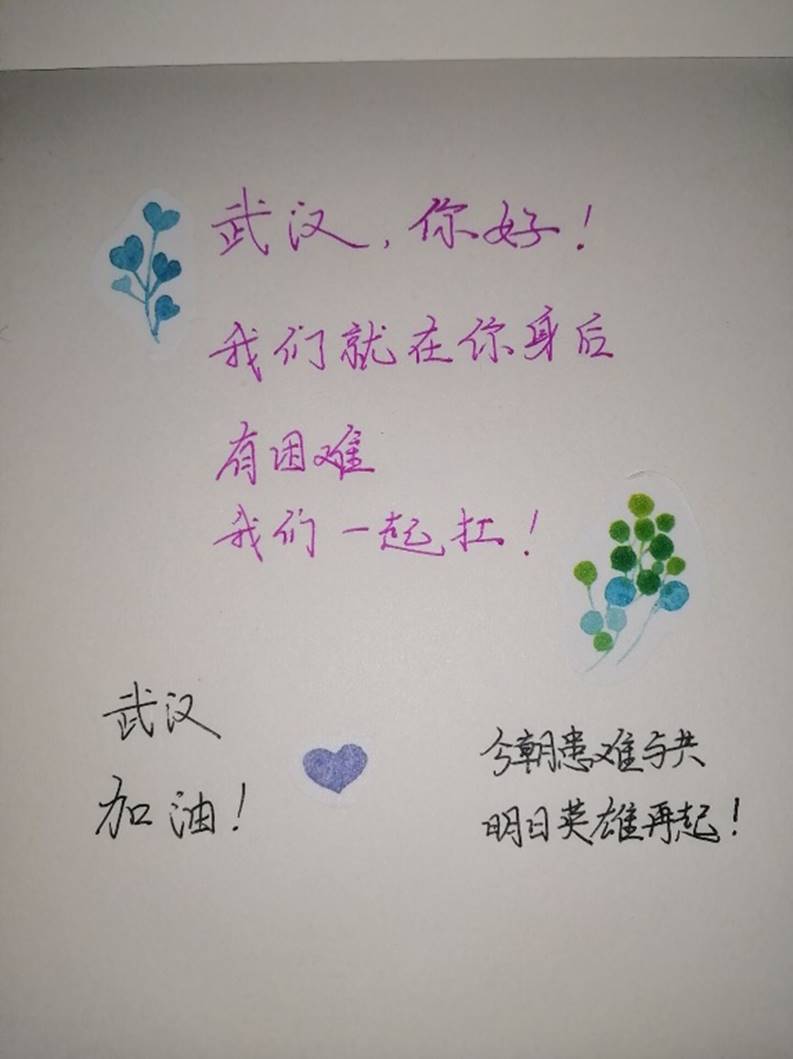 武汉，你好！
我们就在你身后
有困难
我们一起扛！
武汉
加油！
今朝患难与共
明日英雄再起！